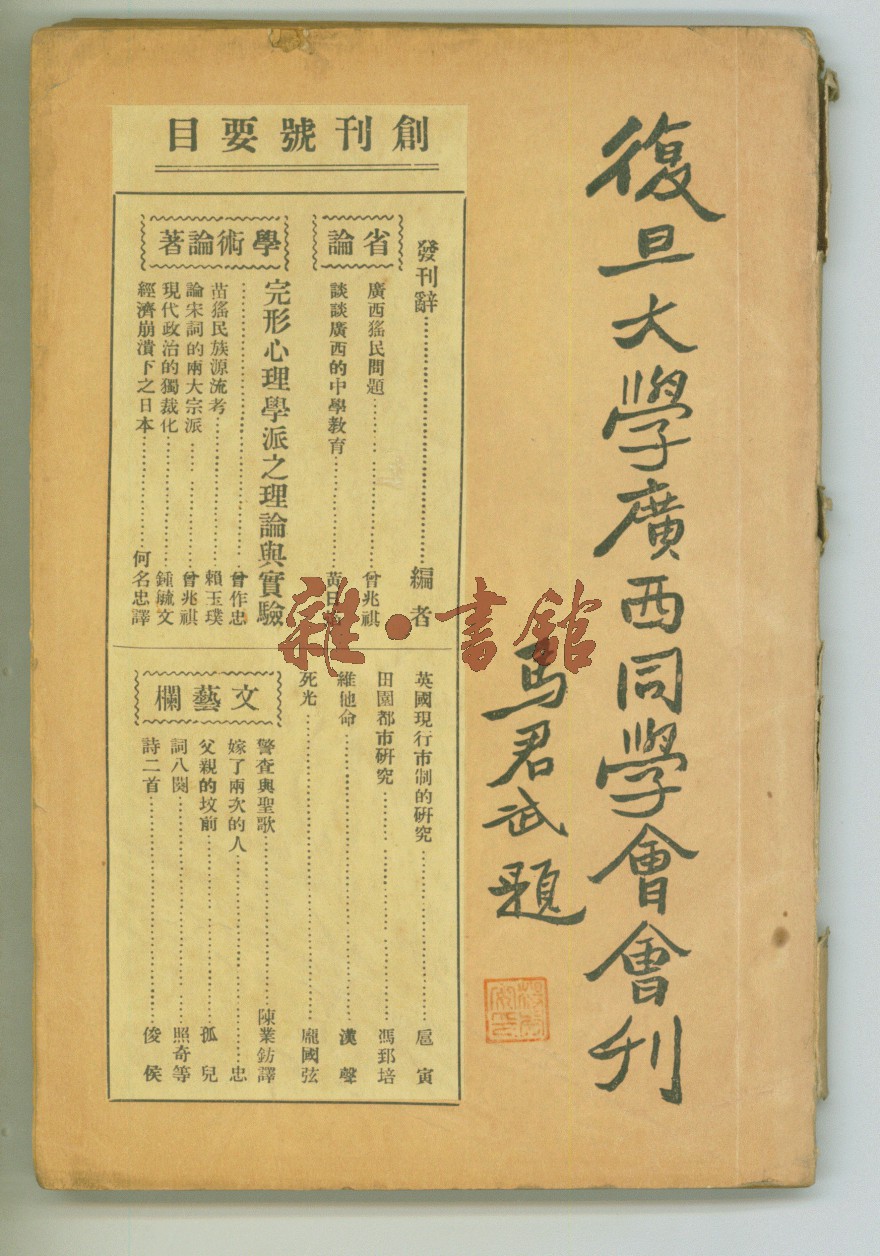 復旦大學廣西同學會會刊
馬君武題
創刊號要目
發刊辭 編者
省論
廣西猺民問題 曾兆祺
談談廣西的中學教育 黃曰
學術論著
完形心理學派之理論與實驗
曾作忠
苗猺民族源流考 賴玉璞
論宋詞的兩大宗派 曾兆祺
現代政治的獨裁化 鍾毓文
經濟崩潰下之日本 何名忠譯
英國現行市制的研究 扈寅
田園都市研究 馮郅培
維他命 漢聲
死光 龐國弦
文藝欄
警查與聖歌 陳業鈁譯
嫁了兩次的人 忠
父親的坟前 孤兒
詞八闋 照奇等
詩二首 俊侯
雜·書館